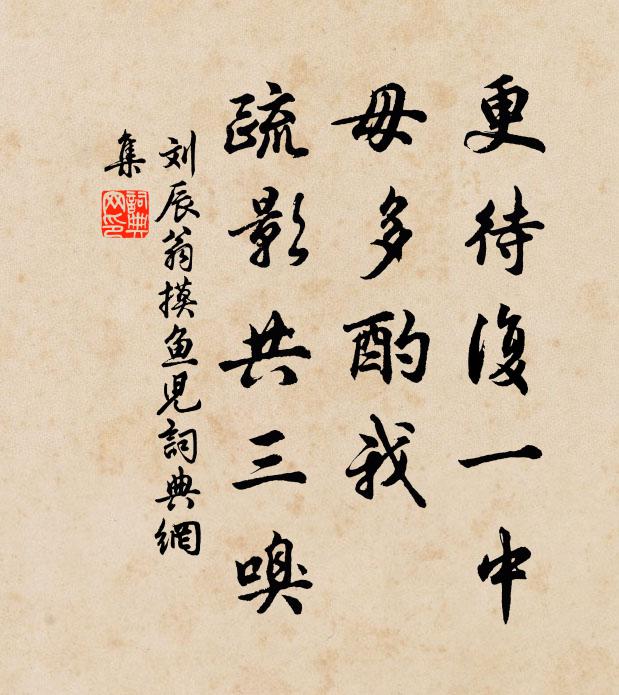 更待復一中
毋多酌我
疏影共三嗅
刘辰翁摸鱼儿詞典網
集
詞典
网印